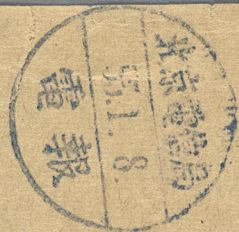 北京電信局
57.1.8.
電報